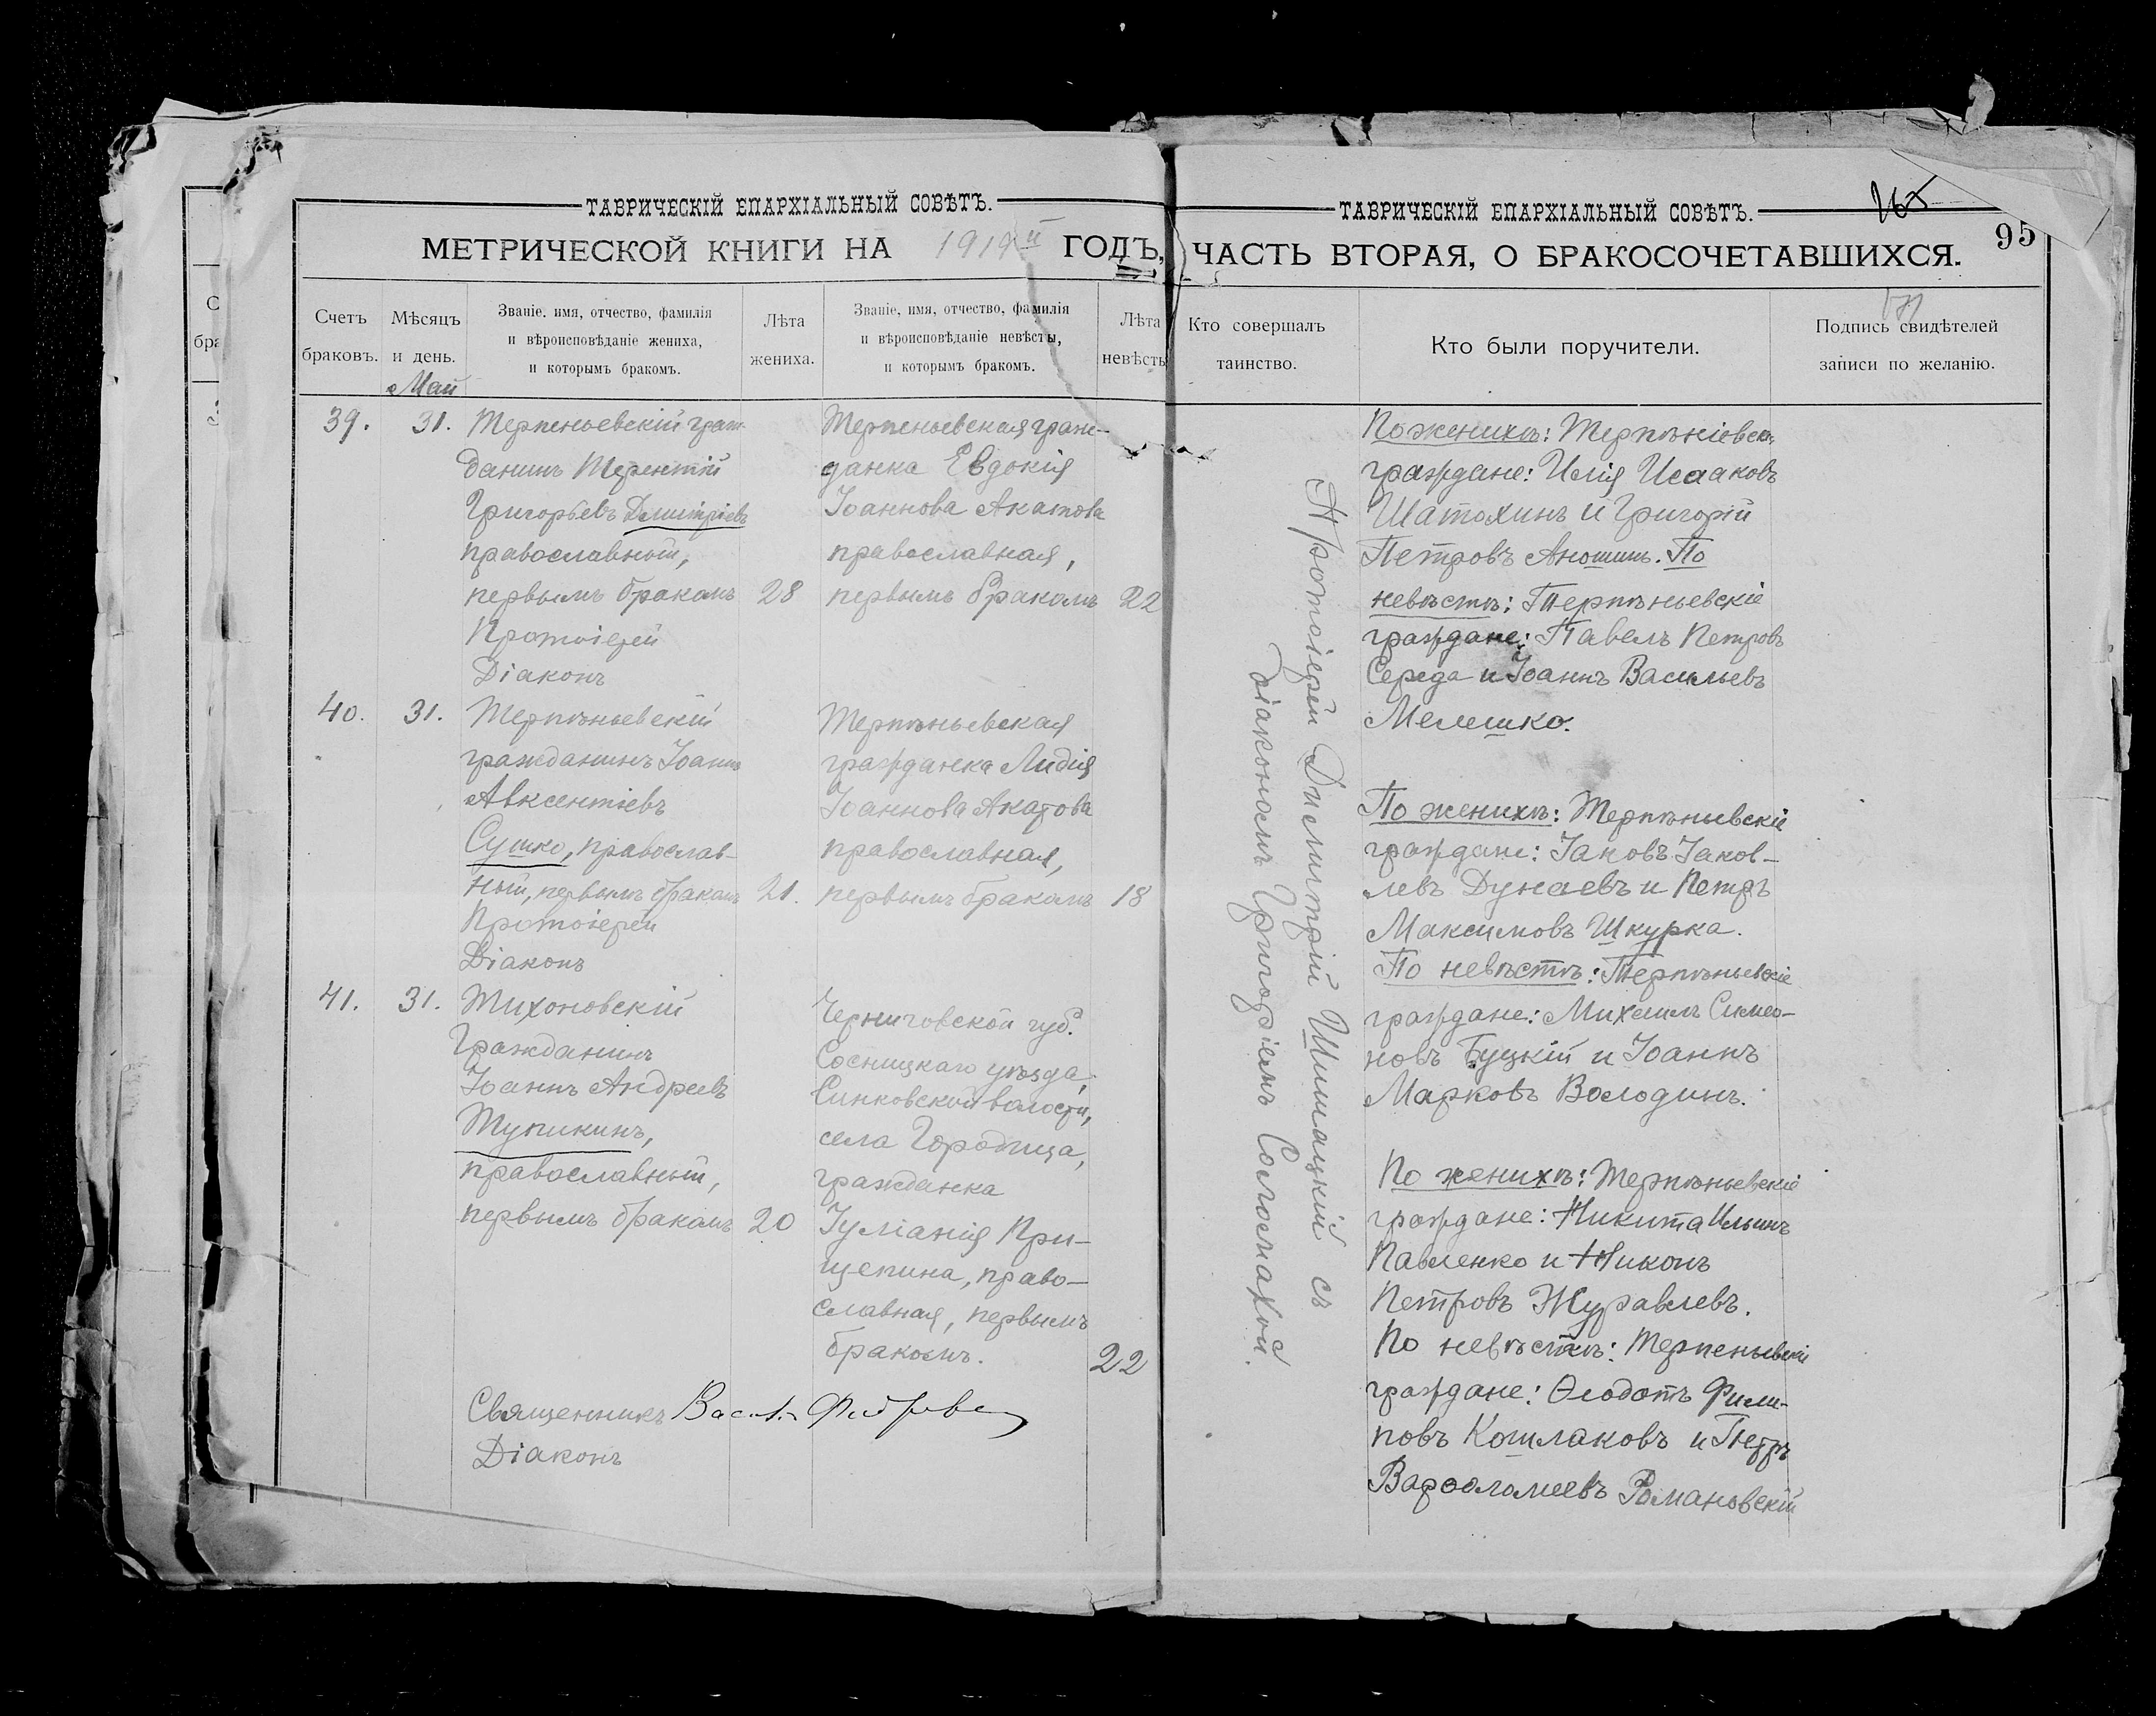 ТАВРИЧЕСКІЙ ЕПАРХІАЛЬНЫЙ СОВѢТЪ.
МЕТРИЧЕСКОЙ КНИГИ НА 1919й ГОДЪ,
Счетъ браковъ.
Мѣсяцъ и день.
Званіе, имя, отчество, фамилія
и вѣроисповѣданіе жениха,
и которымъ бракомъ.
Лѣта жениха.
Званіе, имя, отчество, фамилія
и вѣроисповѣданіе невѣсты,
и которымъ бракомъ.
Лѣта невѣсты
Май
39.
31.
Терпеньевскій граж-
данинъ Терентій
Григорьевъ Димитріевъ
православный,
первымъ бракомъ
28
Протоіерей
Діаконъ
Терпеньевская граж-
данка Евдокія
Іоаннова Акатова
православная,
первымъ бракомъ
22
40.
31.
Терпѣньевскій
гражданинъ Іоаннъ
Авксентіевъ
Сушко, православ-
ный, первымъ бракомъ
21.
Протоіерей
Діаконъ
Терпѣньевская
гражданка Лидія
Іоаннова Акатова
православная,
первымъ бракомъ
18
41.
31.
Тихоновскій
Гражданинъ
Іоаннъ Андреевъ
Тупикинъ,
православный,
первымъ бракомъ
20
Черниговской губ.
Сосницкаго уѣзда,
Синковской волости,
села Городища,
гражданка
Іуліанія При-
щепина, право-
славная, первымъ
бракомъ.
22
Священникъ
Діаконъ
ТАВРИЧЕСКІЙ ЕПАРХІАЛЬНЫЙ СОВѢТЪ.
95
ЧАСТЬ ВТОРАЯ, О БРАКОСОЧЕТАВШИХСЯ.
Кто совершалъ
таинство.
Кто были поручители.
Подпись свидѣтелей
записи по желанію.
Протоіерей Димитрій Шишацкій съ
діакономъ Григоріемъ Соломахой.
По женихѣ: Терпѣніевск.
граждане: Илія Исааковъ
Шатохинъ и Григорій
Петровъ Аношинъ. По
невѣстѣ: Терпѣньевскіе
граждане: Павелъ Петровъ
Середа и Іоаннъ Васильевъ
Мелешко.
По женихѣ: Терпѣньевскіе
граждане: Іаковъ Іаков-
левъ Дунаевъ и Петръ
Максимовъ Шкурка.
По невѣстѣ: Терпѣньевскіе
граждане: Михаилъ Симео-
новъ Буцкій и Іоаннъ
Марковъ Володинъ.
По женихѣ: Терпѣньевскіе
граждане: Никита Ильинъ
Павленко и Никонъ
Петровъ Журавлевъ.
По невѣстѣ: Терпеньевскіе
граждане: Ѳеодотъ Фили-
повъ Кошлаковъ и Петръ
Варѳоломеевъ Романовскій